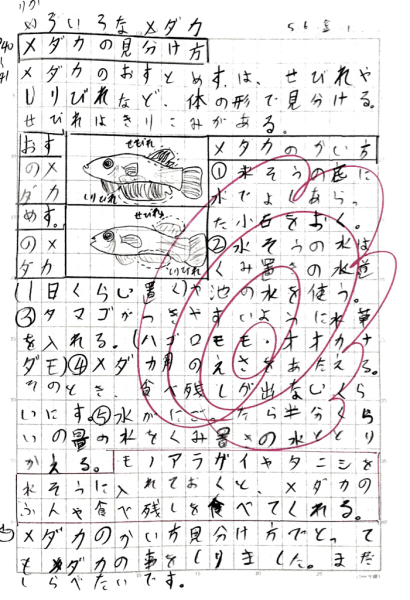 りか
いろいろなメダカ
メダカの見分け方
メダカのおすとめすは、せびれや
しりびれなど、体の形で見分ける。
せびれはきりこみがある。
おす
のメ
ダカ
せびれ
しりびれ
めす。
のメ
ダカ
せびれ
しりびれ
メダカのかい方
①水そうの底に
水でよくあらっ
た小石をおく。
②水そうの水は
くみ置きの水道
(1日くらい置く)や池の水を使う。
③タマゴがつきやすいように水草
を入れる。(ハゴロモモ・オオカナ
ダモ)④メダカ用のえさをあたえる。
そのとき、食べ残しが出ないくら
いにす。⑤水がにごったら半分くら
いの量の水をくみ置きの水ととり
かえる。モノアラガイヤタニシを
水そうに入れておくと、メダカの
ふんや食べ残しを食べてくれる。
メダカのかい方見分け方でとって
もメダカの事をしりました。まだ
しらべたいです。